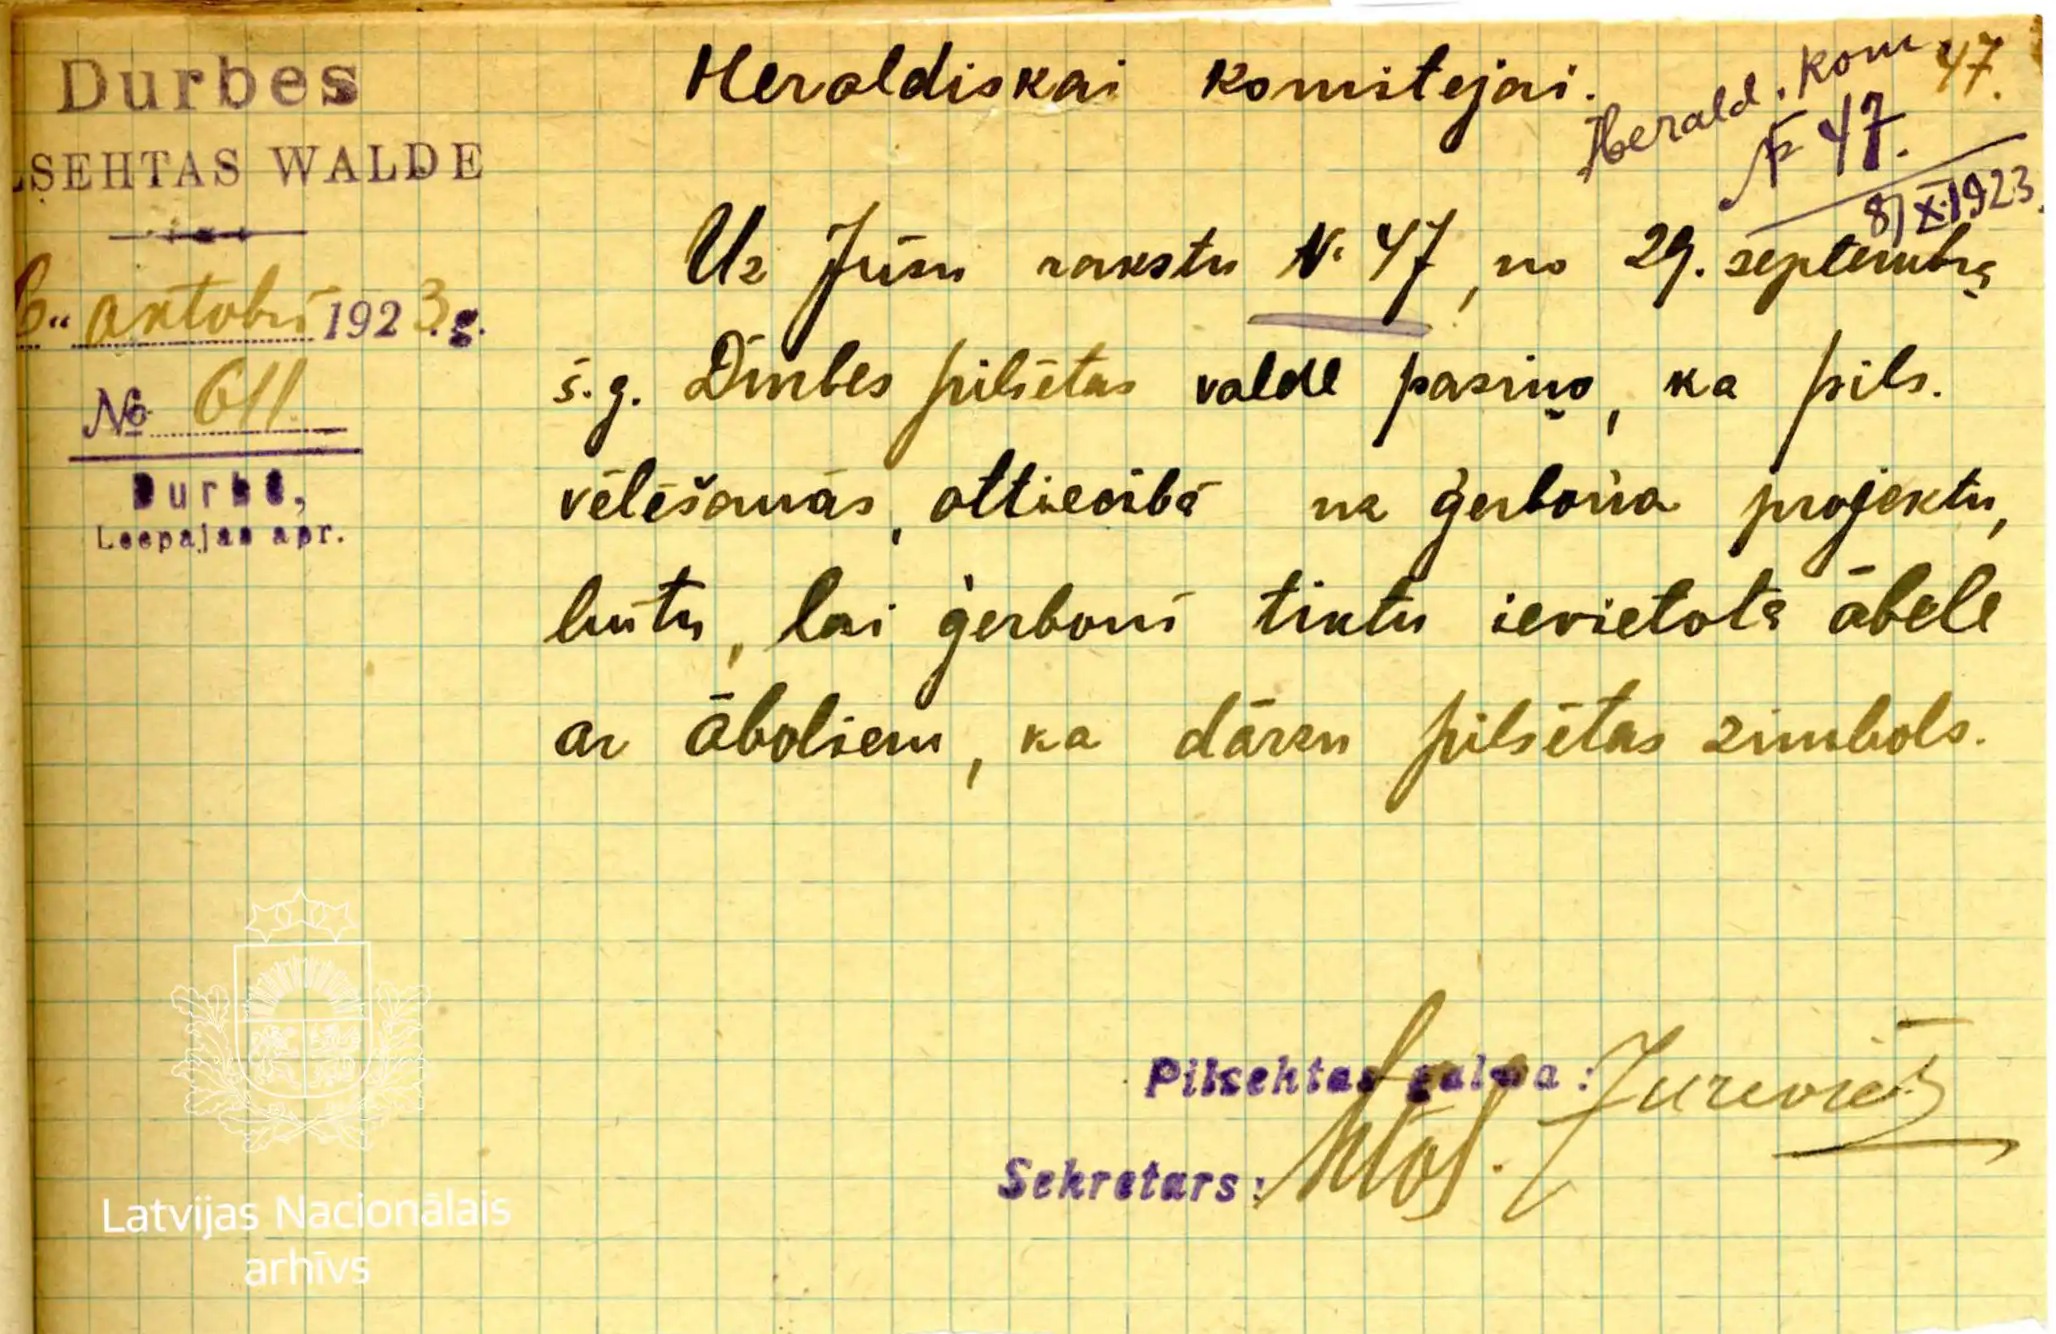 Durbes
SEHTAS WALDE
6." oktobrī 1923.g.
№ 611.
Durbē,
Leepajas apr.
47.
Herald. Kom
№ 47.
8) X 1923.
Heraldiskai Komitejai.
Uz Jūsu rakstu N. 47, no 29. septembŗa
š.g. Durbes pilsētas valde paziņo, ka pils.
vēlēšanās, attiecībā uz ģerboņa projektu,
būtu, lai ģerbonī tiktu ievietota ābele
ar āboliem, ka dārzu pilsētas zimbols.
Pilsehtas galwa:
Sekretars:
Latvijas Nacionālais
arhīvs